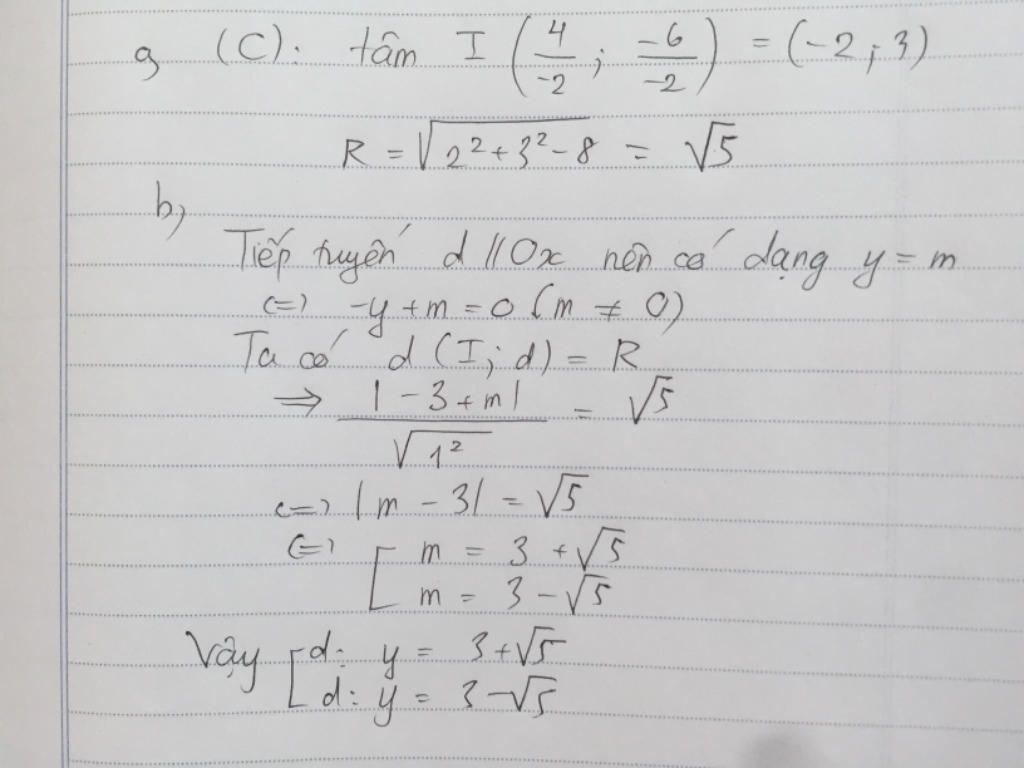 a, (C): tâm I (4/-2 ; -6/-2) = (-2 ; 3)
R = √(2² + 3² - 8) = √5
b,
Tiếp tuyến d // Ox nên có dạng y = m
<=> -y + m = 0 (m ≠ 0)
Ta có d (I; d) = R
=> |-3 + m| / √(1²) = √5
<=> |m - 3| = √5
<=> [ m = 3 + √5
m = 3 - √5
Vậy [ d: y = 3 + √5
d: y = 3 - √5